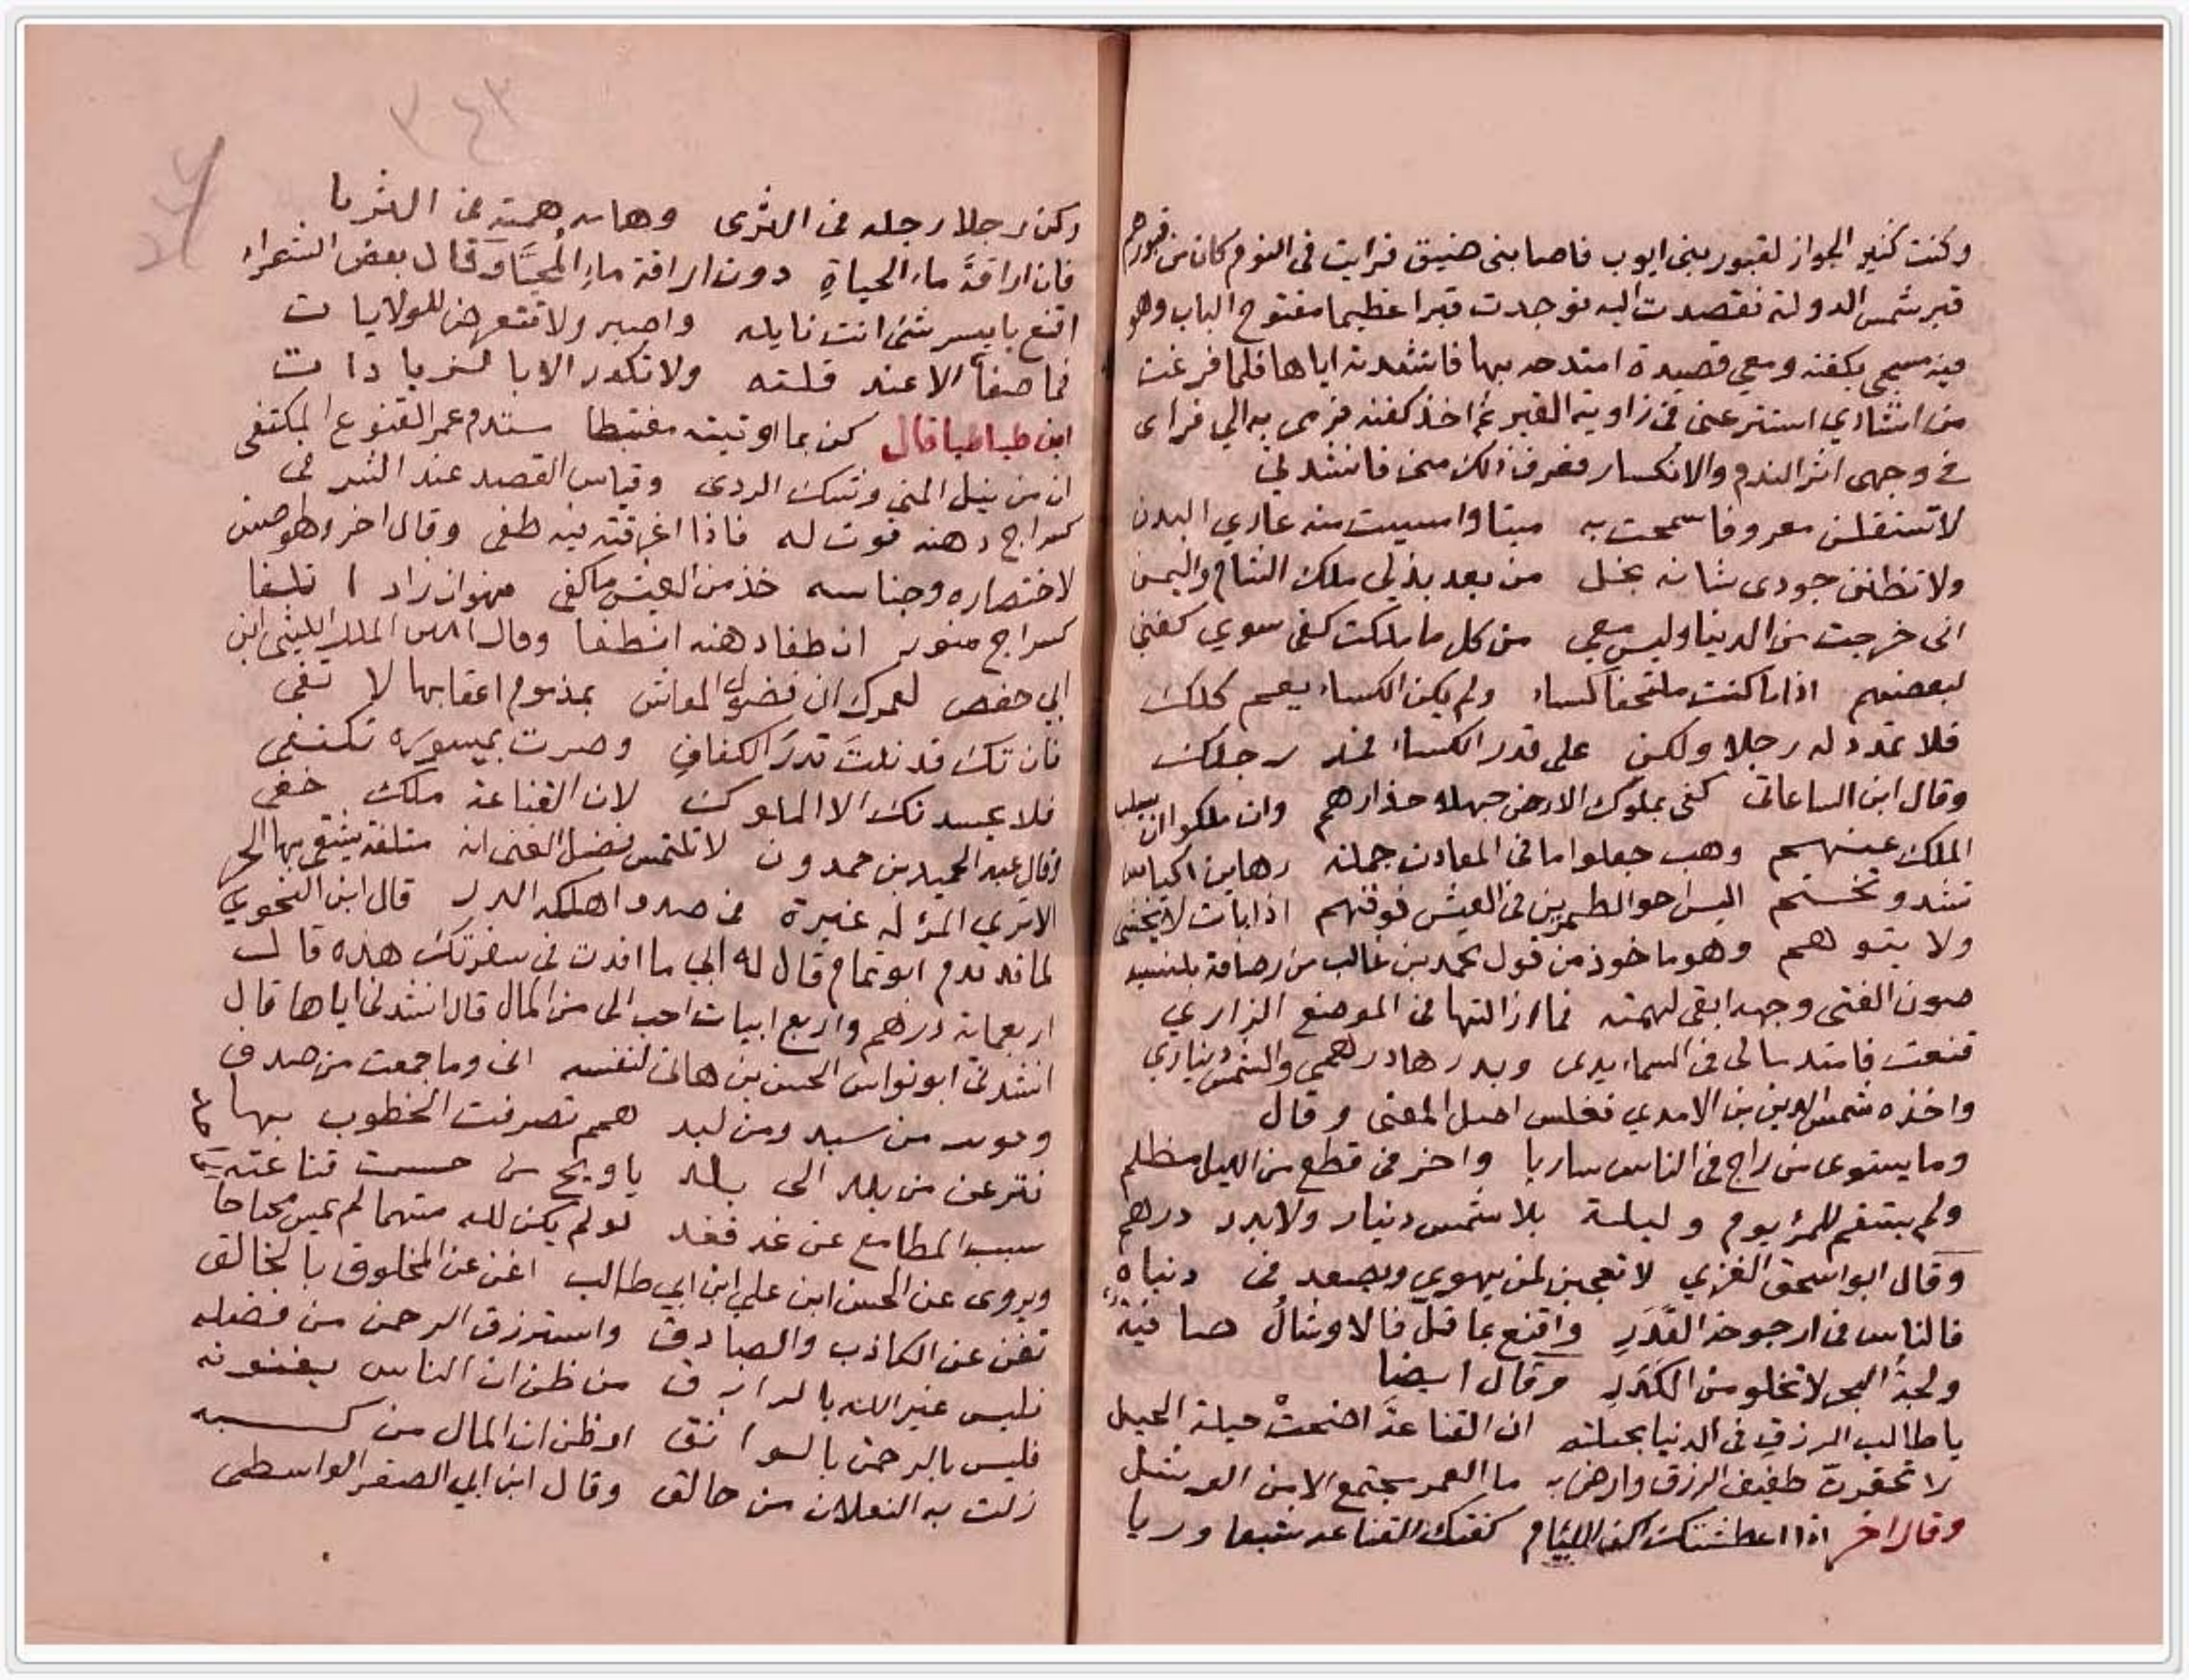 وكنت كثير الجواز لقبور بنى ايوب فاصابنى ضيق فرايت فى النوم كان من قبورهم
قبر شمس الدولة فقصدت اليه فوجدت قبرا عظيما مفتوح الباب وهو
فيه مسجى بكفنه ومعي قصيدة امتدحه بها فانشدته اياها فلما فرغت
من انشادي استتر عنى فى زاوية القبر ثم اخذ كفنه فرمى به الي فراى
فى وجهى اثر الندم والانكسار فعرف ذلك منى فانشد لي
لا تستقلن معروفا سمحت به ميتا وامسيت منه عاري البدن
ولا تظنن جودى شانه بخل من بعد بذلي ملك الشام واليمن
انى خرجت من الدنيا وليس معي من كل ما ملكت كفى سوي كفني
لبعضهم اذا ما كنت ملتحفا كساء ولم يكن الكساء يعم كلك
فلا تمدد له رجلا ولكن على قدر الكساء فمد رجلك
وقال ابن الساعاتى كفى بملوك الارض جهلا حذارهم وان ملكوا ان
الملك عنهم وهب جعلوا ما فى المعادن جملة رهاين اكياس
تشد وتختم اليس اخو الطمرين فى العيش فوقهم اذا بات لا يخشى
ولا يتوهم وهو ماخوذ من قول محمد بن غالب من رصافة بلنسيه
صون الفتى وجهه ابقى لهمته فما ازالتها فى الموضع الزاري
قنعت فامتد مالى فى السماء يدى وبدرها درهمي والشمس ديناري
واخذه شمس الدين بن الامدي فغلس اصل المعنى وقال
وما يستوى من راح فى الناس ساريا واخر فى قطع من الليل مظلم
ولم يستقم للمرء يوم وليلة بلا شمس دينار ولا بدر درهم
وقال ابو اسحق الغزي لا تعجبن لمن يهوي ويصعد فى دنياه
فالناس فى ارجوحة القَدَرِ واقنع بما قل فالاوشالُ صافيةٌ
ولجةُ البحر لا تخلو من الكَدَرِ وقال ايضا
يا طالب الرزق فى الدنيا بحيلته ان القناعة اضحت حيلة الحيل
لا تحقرن طفيف الرزق وارض به ما الغمر مجتمع الا من الوشل
وقال اخر اذا اعطشتك اكف اللئام كفتك القناعه شبعا وريا
وكن رجلا رجله فى الثرى وهامه همته فى الثريا
فان اراقةَ ماء الحياةِ دون اراقة ماءِ المُحيَّا وقال بعض الشعراء
اقنع بايسر شئ انت نايله واصبر ولا تتعرض للولايات
فما صفا الا عند قلته ولا تكدر الا بالزيادات
ابن طباطبا قال كن بما اوتيته مغتبطا ستدم عمر القنوع المكتفى
ان من نيل المنى وشك الردى وقياس القصد عند السرف
كسراج دهنه قوت له فاذا اغرقته فيه طفى وقال اخر وهو حسن
لاختصاره وجناسه خذ من العيش ما كفى فهو ان زاد اتلفا
كسراج منور ان طفا دهنه انطفا وقال
ابي حفص لعمرك ان فضول المعاش بمذموم اعقابها لا تفى
فان تك قد نلتَ قدرَ الكفافِ وصرت بميسوره تكتفى
فلا يحسدنك الا الملوك لان القناعة ملك خفى
وقال عبد الحميد بن حمدون لا تلتمس فضل الغنى انه متلفة يشقى بها الحر
الا ترى المرء له عبرة فى صدف اهلكه الدر قال ابن النحوي
لما قد قدم ابو تمام قال له ابي ما افدت فى سفرتك هذه قال
اربعمائة درهم واربع ابيات احب الى من المال قال انشدنى اياها قال
انشدنى ابو نواس الحسن بن هانئ لنفسه انى وما جمعت من صدف
وحويت من سبد ومن لبد همم تصرفت الخطوب بها
فنزعن من بلد الى بلد يا ويح من حسمت قناعته
سبب المطامع من غد فغد لو لم يكن لله متهما لم يمس محتاجا
ويروى عن الحسن ابن على ابن ابي طالب اغن عن المخلوق بالخالق
تغن عن الكاذب والصادق واسترزق الرحمن من فضله
فليس غير الله بالرازق من ظن ان الناس يغنونه
فليس بالرحمن بالواثق او ظن ان المال من كسبه
زلت به النعلان من حالق وقال ابن ابي الصقر الواسطى